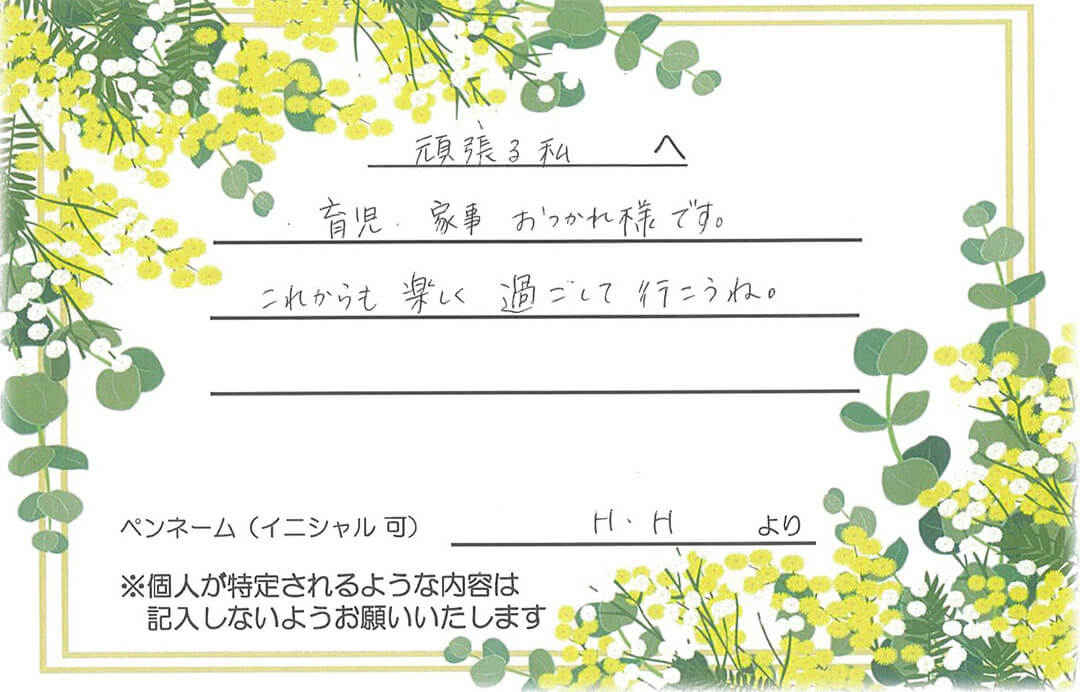 頑張る私 へ
育児・家事 おつかれ様です。
これからも 楽しく 過ごして 行こうね。
ペンネーム（イニシャル 可） H・H より
※個人が特定されるような内容は
記入しないようお願いいたします